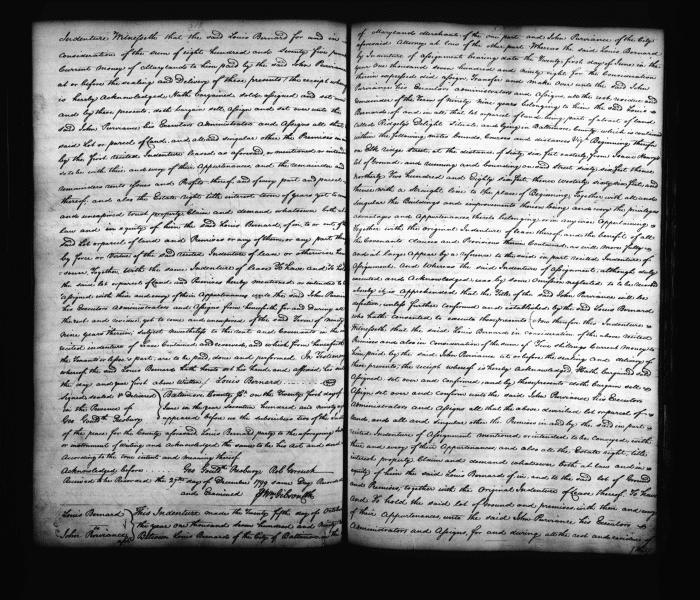 Indenture Witnesseth that the said Louis Bernard for and in
consideration of the sum of eight hundred and Seventy five pounds
Current money of Maryland to him paid by the said John Purviance
at or before the sealing and Delivery of these presents, the receipt whereof
is hereby Acknowledged Hath bargained sold assigned and set over
and by these presents, doth bargain sell Assign and set over unto the
said John Purviance his Executors Administrators and Assigns all that
said lot or parcel of land, and all and singular other the Premises
by the first recited Indenture leased as aforesaid, or mentioned or intended
so to be with their and every of their Appurtenances and the remainder and
remainders rents Issues and Profits thereof, and of every part and parcel
thereof, and also the Estate right title interest term of years yet to
and unexpired trust property Claim and demand whatsoever both at
law and in equity of him the said Louis Bernard, of in to or out of
said Lot or parcel of land and Premises or any of them, or any part
by force or Virtue of the said recited Indenture of lease or otherwise
Together with the same Indenture of lease To have and To hold
the said lot or parcel of land and Premises hereby mentioned or intended to
assigned with their and every of their Appurtenances unto the said John Purviance
his Executors Administrators and Assigns from henceforth for and during all
the rest and residue yet to come and unexpired of the said Term of Ninety
nine years therein, subject nevertheless to the rent and Covenants in the
recited indenture of lease Contained and reserved, and which from henceforth
the Tenants or lessees part, are to be paid, done and performed. In Testimony
whereof the said Louis Bernard hath hereto set his hand and affixed his seal
the day and year first above Written Louis Bernard
Signed sealed & Delivered Baltimore County Ss. on the Twenty first day of
in the Presence of June in the year Seventeen hundred and ninety
Geo Gouldh. Presbury appeared before us the subscribers two of the Justices
of the peace for the County aforesaid Louis Bernard party to the aforegoing
or instrument of Writing and Acknowledged the same to be his Act and deed
According to the true intent and meaning thereof
Acknowledged before Geo Gouldh. Presbury
Received to be Recorded the 27th day of December 1799 same Day Recorded
and Examined
Louis Bernard This Indenture made the Twenty fifth day of October
to the year one thousand seven hundred and ninety
John Purviance Between Louis Bernard of the City of Baltimore in the
of Maryland Merchant of the one part and John Purviance of the City
aforesaid Attorney at law of the other part. Whereas the said Louis Bernard
by Indenture of Assignment bearing date the Twenty first day of June in the
year One thousand seven hundred and ninety eight for the Consideration
therein expressed did assign Transfer and Make over unto the said John
Purviance his Executors administrators and Assigns all the rest residue and
remainder of the Term of Ninety Nine years belonging to him the said Louis
Bernard of and in all that lot or parcel of land being part of a tract of land
Called Ridgelys Delight Situate and lying in Baltimore County which is contained
within the following metes bounds Courses and distances Viz. Beginning thereof
on Elk ridge Street, at the distance of sixty six feet easterly from
lot of Ground and running and bounding on said Street sixty six feet thence
northerly Two hundred and Eighty six feet thence westerly sixty six feet and
thence with a straight line to the place of Beginning. Together with all and
singular the Buildings and improvements thereon being and every the privileges
advantages and Appurtenances thereto belonging or in any wise Appertaining
Together with the original Indenture of lease thereof, and the benefit of all
the Covenants clauses and Provisos therein Contained, as will more fully
and at large Appear by a reference to the said in part recited Indenture of
Assignment. And Whereas the said Indenture of Assignment, although duly
executed and Acknowledged, was by some omission neglected to be recorded
whereby it is Apprehended that the title of the said John Purviance will be
defective, unless further confirmed and established by the said Louis Bernard
who hath consented to execute these presents. Now therefore this Indenture
Witnesseth that the said Louis Bernard in consideration of the above recited
Premises and also in consideration of the sum of Five shillings Current money to
him paid by the said John Purviance at or before the sealing and delivery of
these presents, the receipt whereof is hereby Acknowledged Hath bargained sold
Assigned set over and confirmed, and by these presents doth bargain sell
Assign set over and confirm unto the said John Purviance, his Executors
Administrators and Assigns, all that the above described lot or parcel of
land, and all and singular other the Premises in and by the said in part
recited Indenture of Assignment mentioned or intended to be Conveyed, with
their and every of their Appurtenances, and also all the Estate, right, title
interest, property Claim and demand whatsoever both at law and in
equity of him the said Louis Bernard of in and to the said lot of Ground
and Premises, together with the original Indenture of lease thereof. To Have
and To hold the said lot of Ground and premises, with their and every
of their Appurtenances, unto the said John Purviance his Executors
Administrators and Assigns, for and during all the rest and residue of